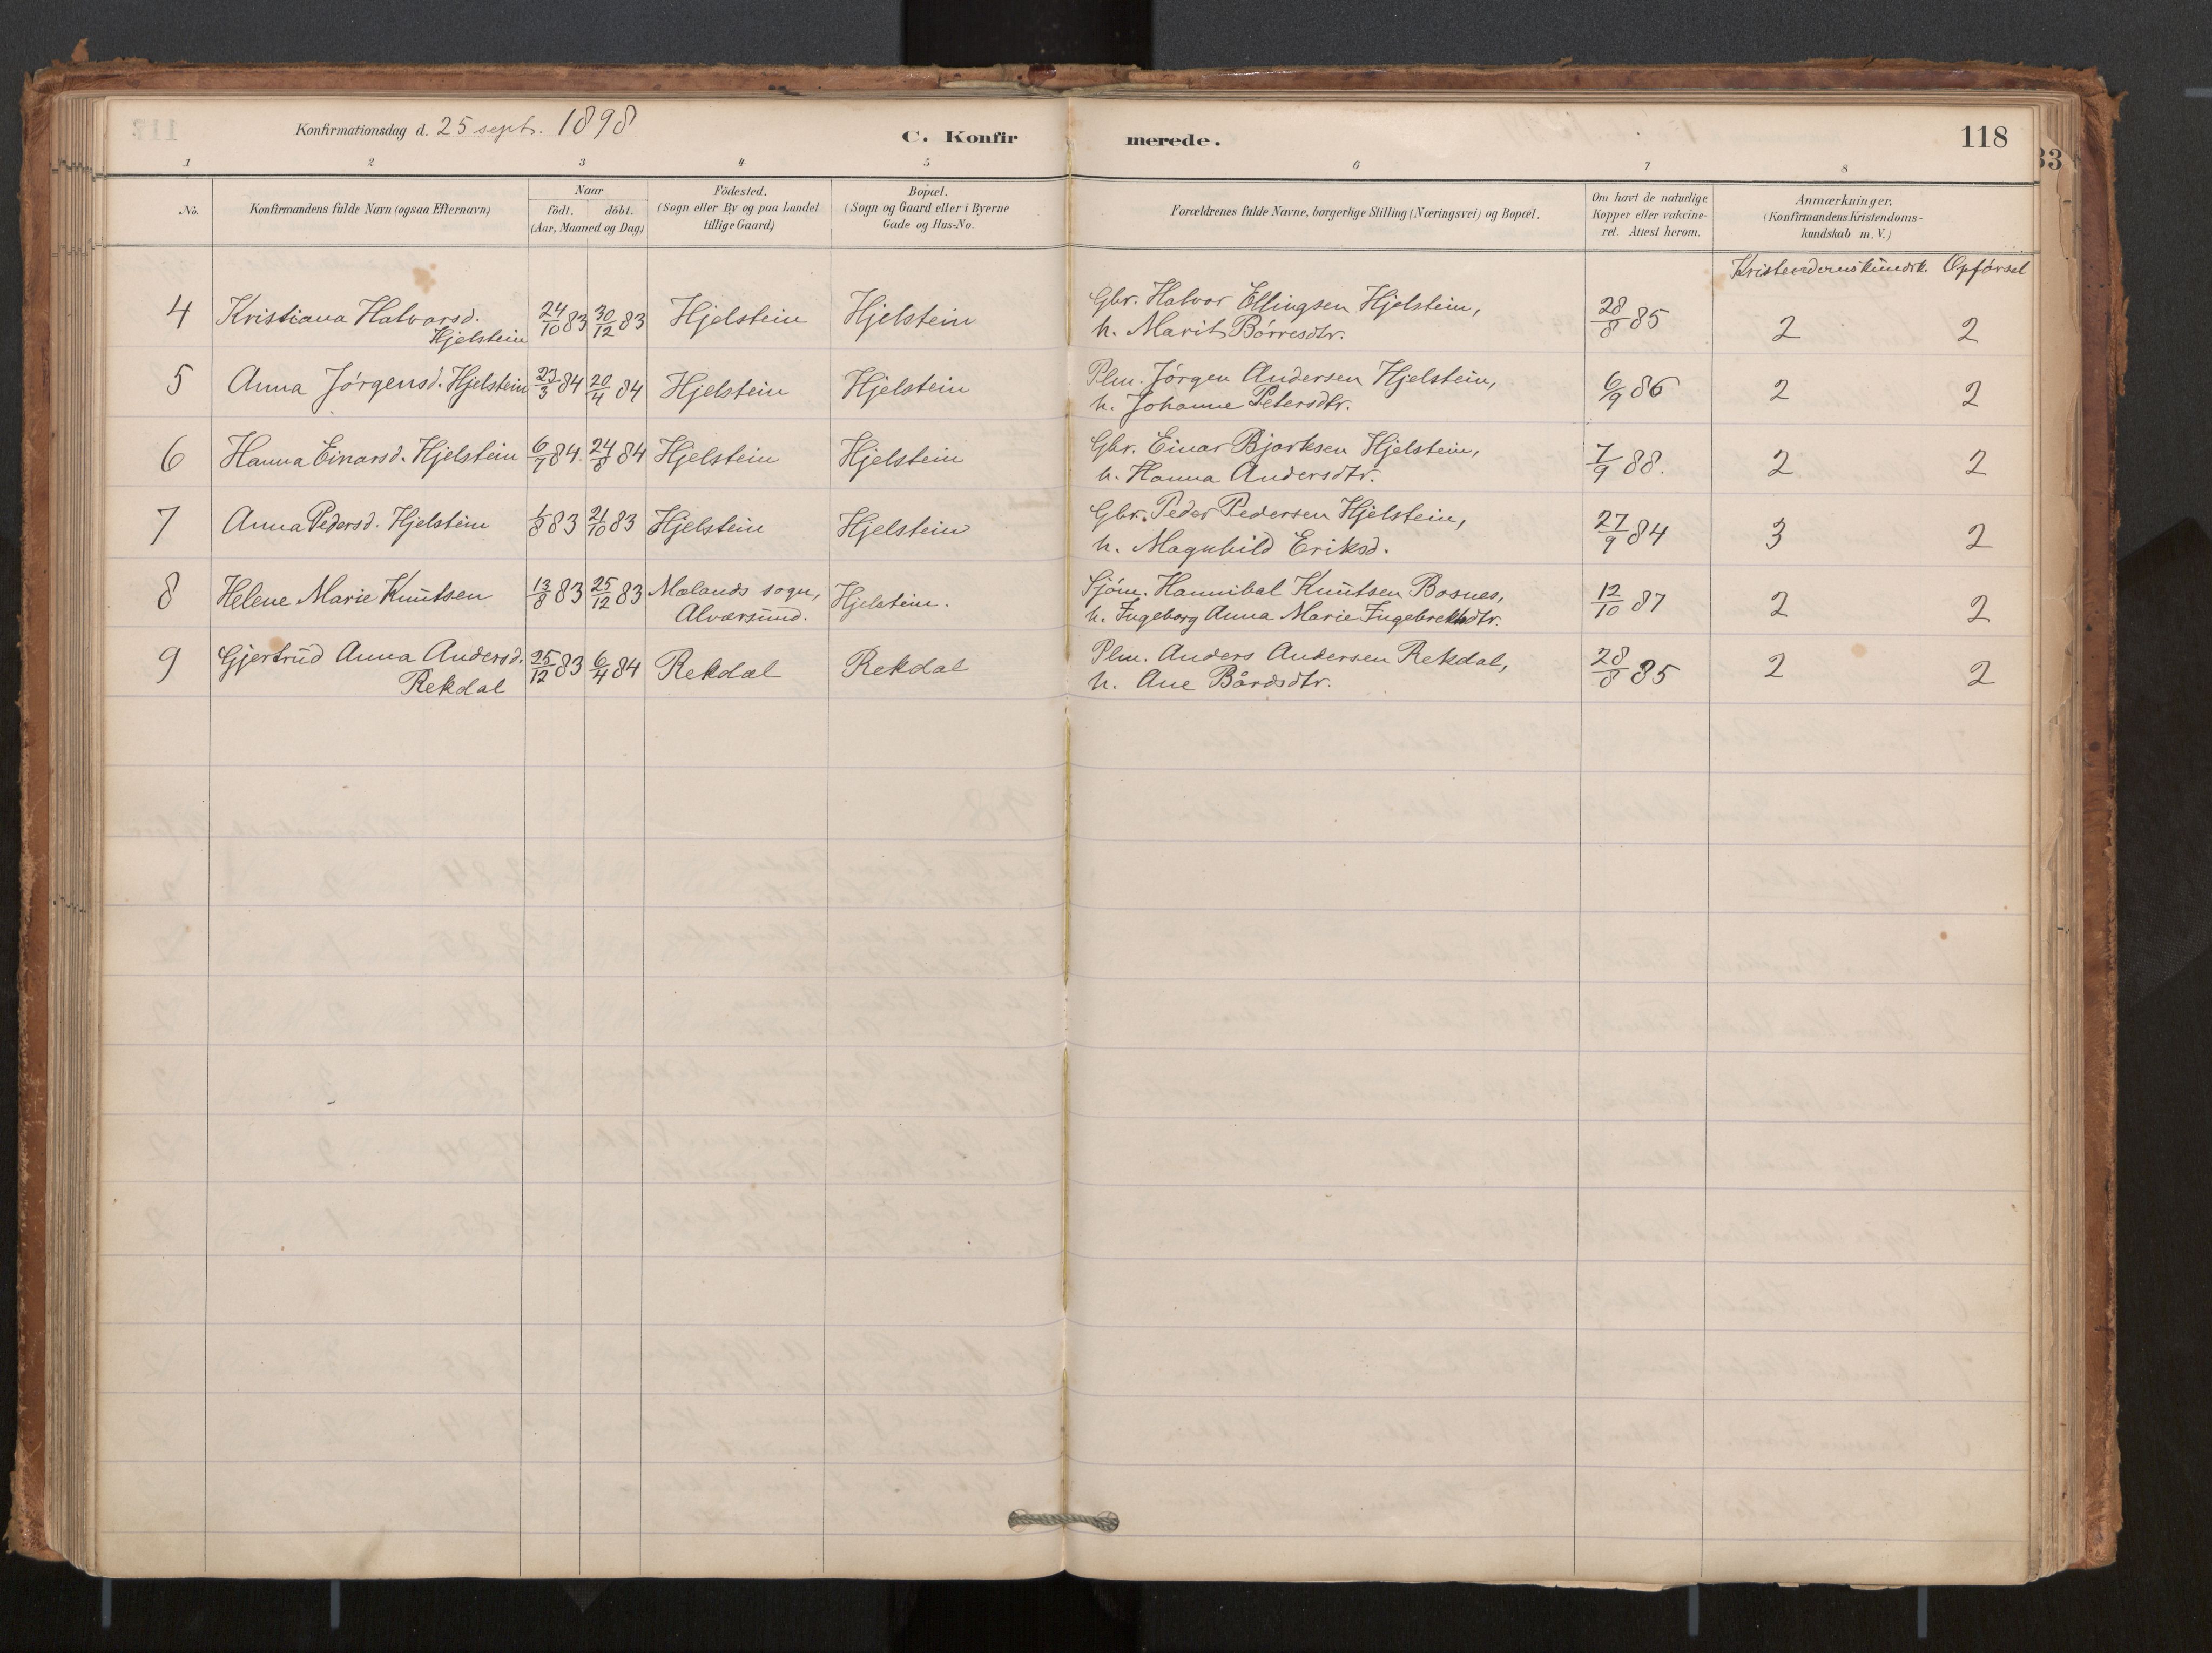 Konfirmationsdag d. 25 sept. 1898
C. Konfirmerede.
118
33
1 2 3 4 5 6 7 8
No.
Konfirmandens fulde Navn (ogsaa Efternavn)
Naar
födt. döbt.
(Aar, Maaned og Dag)
Födested.
(Sogn eller By og paa Landet
tillige Gaard)
Bopæl.
(Sogn og Gaard eller i Byerne
Gade og Hus-No.
Forældrenes fulde Navne, borgerlige Stilling (Næringsvei) og Bopæl.
Om havt de naturlige
Kopper eller vakcine-
ret. Attest herom.
Anmærkninger.
(Konfirmandens Kristendoms-
kundskab m. V.)
Kristendomskundsk. Opførsel
4 Kristiana Halvorsd. 24/10 83 30/12 83 Hjelstein Hjelstein Gbr. Halvor Ellingsen Hjelstein, 28/8 85 2 2
Hjelstein h. Marit Børresdtr.
5 Anna Jørgensd. Hjelstein 23/3 84 20/4 84 Hjelstein Hjelstein Plm. Jørgen Andersen Hjelstein, 6/9 86 2 2
h. Johanne Petersdtr.
6 Hanna Einarsd. Hjelstein 6/7 84. 24/8 84 Hjelstein Hjelstein Gbr. Einar Bjørksen Hjelstein, 7/9 88. 2 2
h. Hanna Andersdtr.
7 Anna Pedersd. Hjelstein 1/8 83 21/10 83 Hjelstein Hjelstein Gbr. Peder Pedersen Hjelstein, 27/9 84 3 2
h. Magnhild Eriksd.
8 Helene Marie Knutsen 13/8 83 25/12 83 Mælands sogn, Hjelstein. Sjøm. Hannibal Knutsen Bosnes, 12/10 87 2 2
Alversund. h. Ingeborg Anna Marie Ingebrektsdtr.
9 Gjertrud Anna Andersd. 25/12 83 6/4 84 Rekdal Rekdal Plm. Anders Andersen Rekdal, 28/8 85 2 2
Rekdal h. Ane Bårdsdtr.